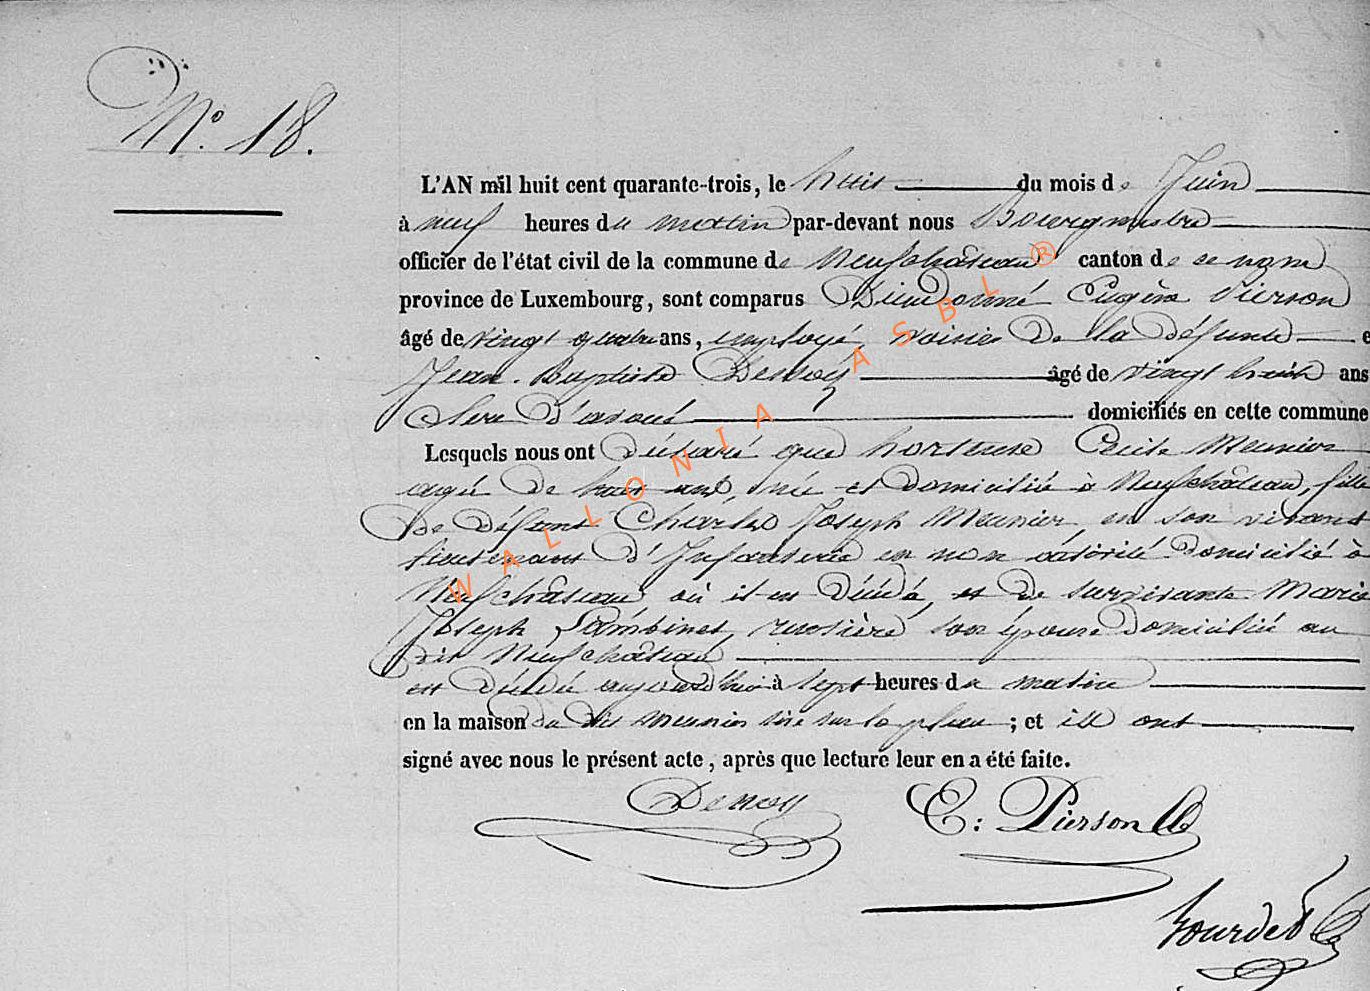 N° 18.
L'AN mil huit cent quarante-trois, le huit du mois de Juin
à neuf heures du matin par-devant nous Bourgmestre
officier de l'état civil de la commune de Neufchâteau canton de ce nom
province de Luxembourg, sont comparus Dieudonné Eugène Pierson
âgé de vingt quatre ans, employé, voisin de la défunte e
Jean-Baptiste Denoy âgé de vingt huit ans
Clerc d'avoué domiciliés en cette commune
Lesquels nous ont déclaré que hortense Cécile Meunier
agée de huit ans, née et domiciliée à Neufchâteau, fille
de défunt Charles Joseph Meunier, en son vivant
lieutenant d'Infanterie en non activité domicilié à
Neufchâteau où il est décédé, et de survivante Marie
Joseph Lambinet, son épouse domiciliée au
dit Neufchâteau
est décédée aujourd'hui à sept heures du matin
en la maison du dit Meunier sise sur la place ; et ils ont
signé avec nous le présent acte, après que lecture leur en a été faite.
Denoy E: Pierson
Bourdet
WALLONIA ASBL ®